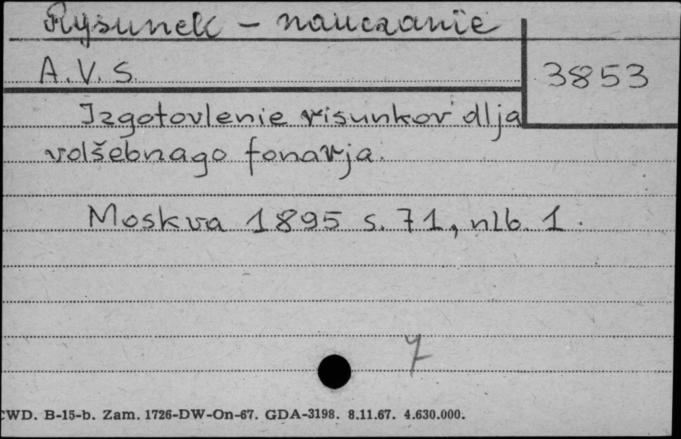 Rysunek - nauczanie
A.V.S.
3853
Izgotovlenie risunkov dlja
volšebnago fonarja.
Moskva 1895 s. 71, nlb. 1.
7
CWD. B-15-b. Zam. 1726-DW-On-67. GDA-3198. 8.11.67. 4.630.000.